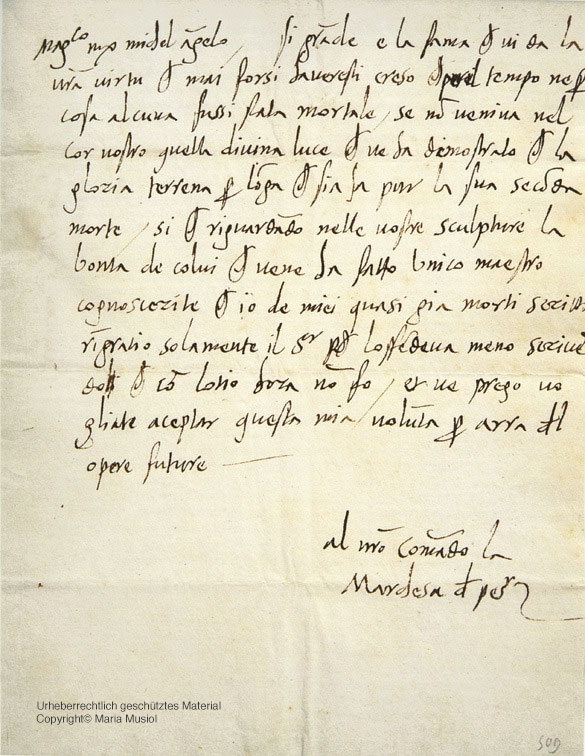 Mag.co m̃ michel āgelo / si grāde e la fama ch̃ vi da la
vrã virtu ch̃ mai forsi haveresti creso ch̃ per tempo ne p̱
cosa alcuna fussi stata mortale / se nō veniva nel
cor vostro quella divina luce ch̃ ve ha dimostrato ch̃ la
gloria terrena p̱ lōga ch̃ sia ha pur la sua secōda
morte / si ch̃ riguardādo nelle vostre sculpture la
bonta de colui ch̃ vene ha fatto unico maestro
cognoscerite ch̃ io de miei quasi gia morti scritti
rīgratio solamente il S.r p̱ch̃ loffēdeva meno scrivē
doli ch̃ cō lotio hora nō fo / et ve prego vo
gliate aceptar questa mia volūta p̱ arra del
opere future
al vrõ comādo la
Marchesa de pesr
Urheberrechtlich geschütztes Material
Copyright© Maria Musiol
509